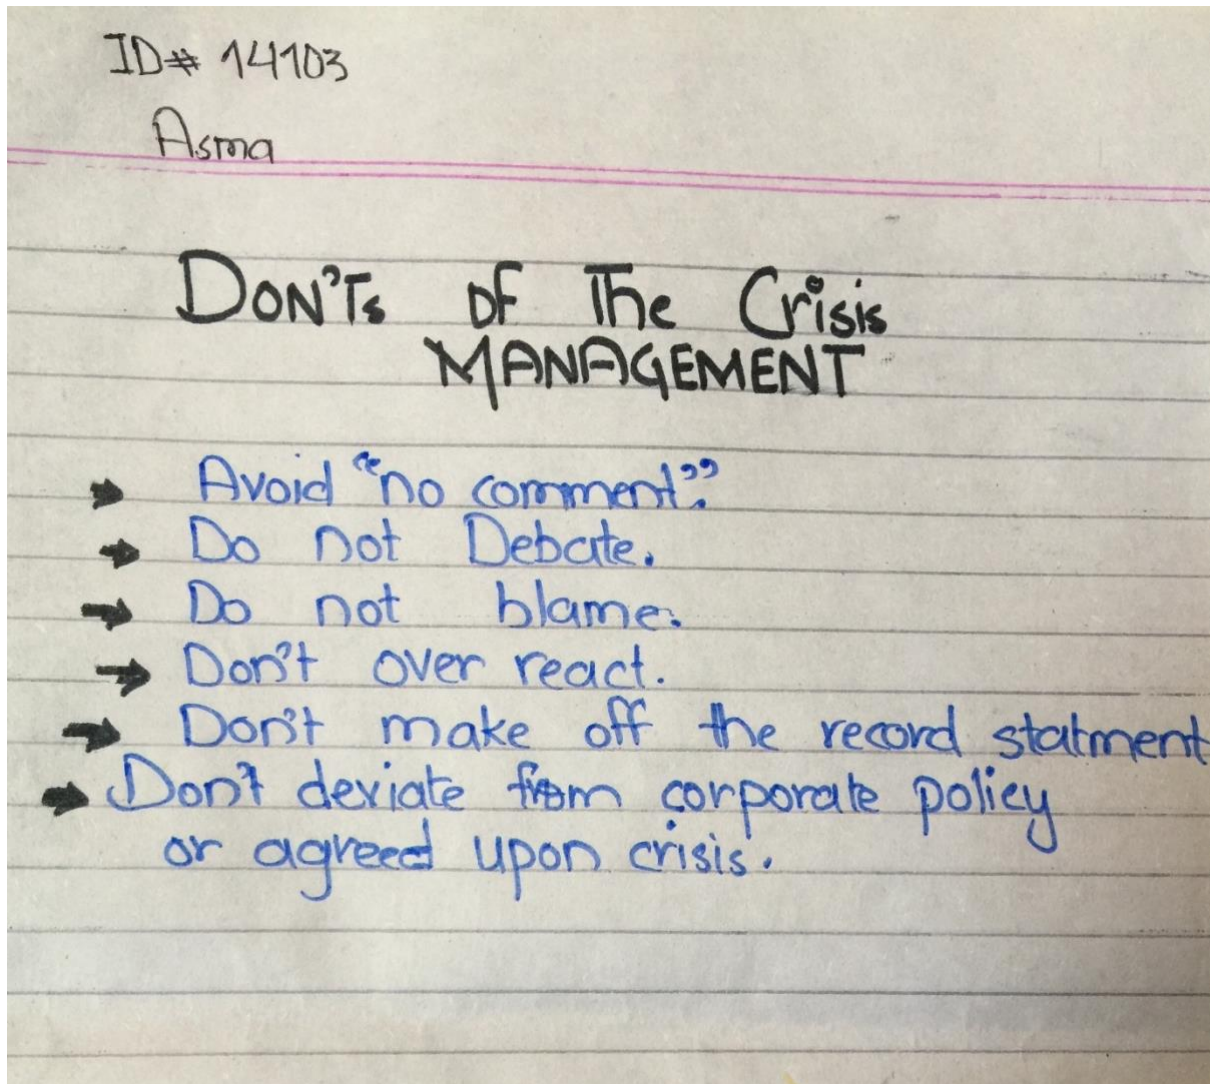 ID# 14103
Asma
DON'Ts of The Crisis
MANAGEMENT
→ Avoid "no comment".
→ Do not Debate.
→ Do not blame.
→ Don't over react.
→ Don't make off the record statment
→ Don't deviate from corporate policy
or agreed upon crisis.